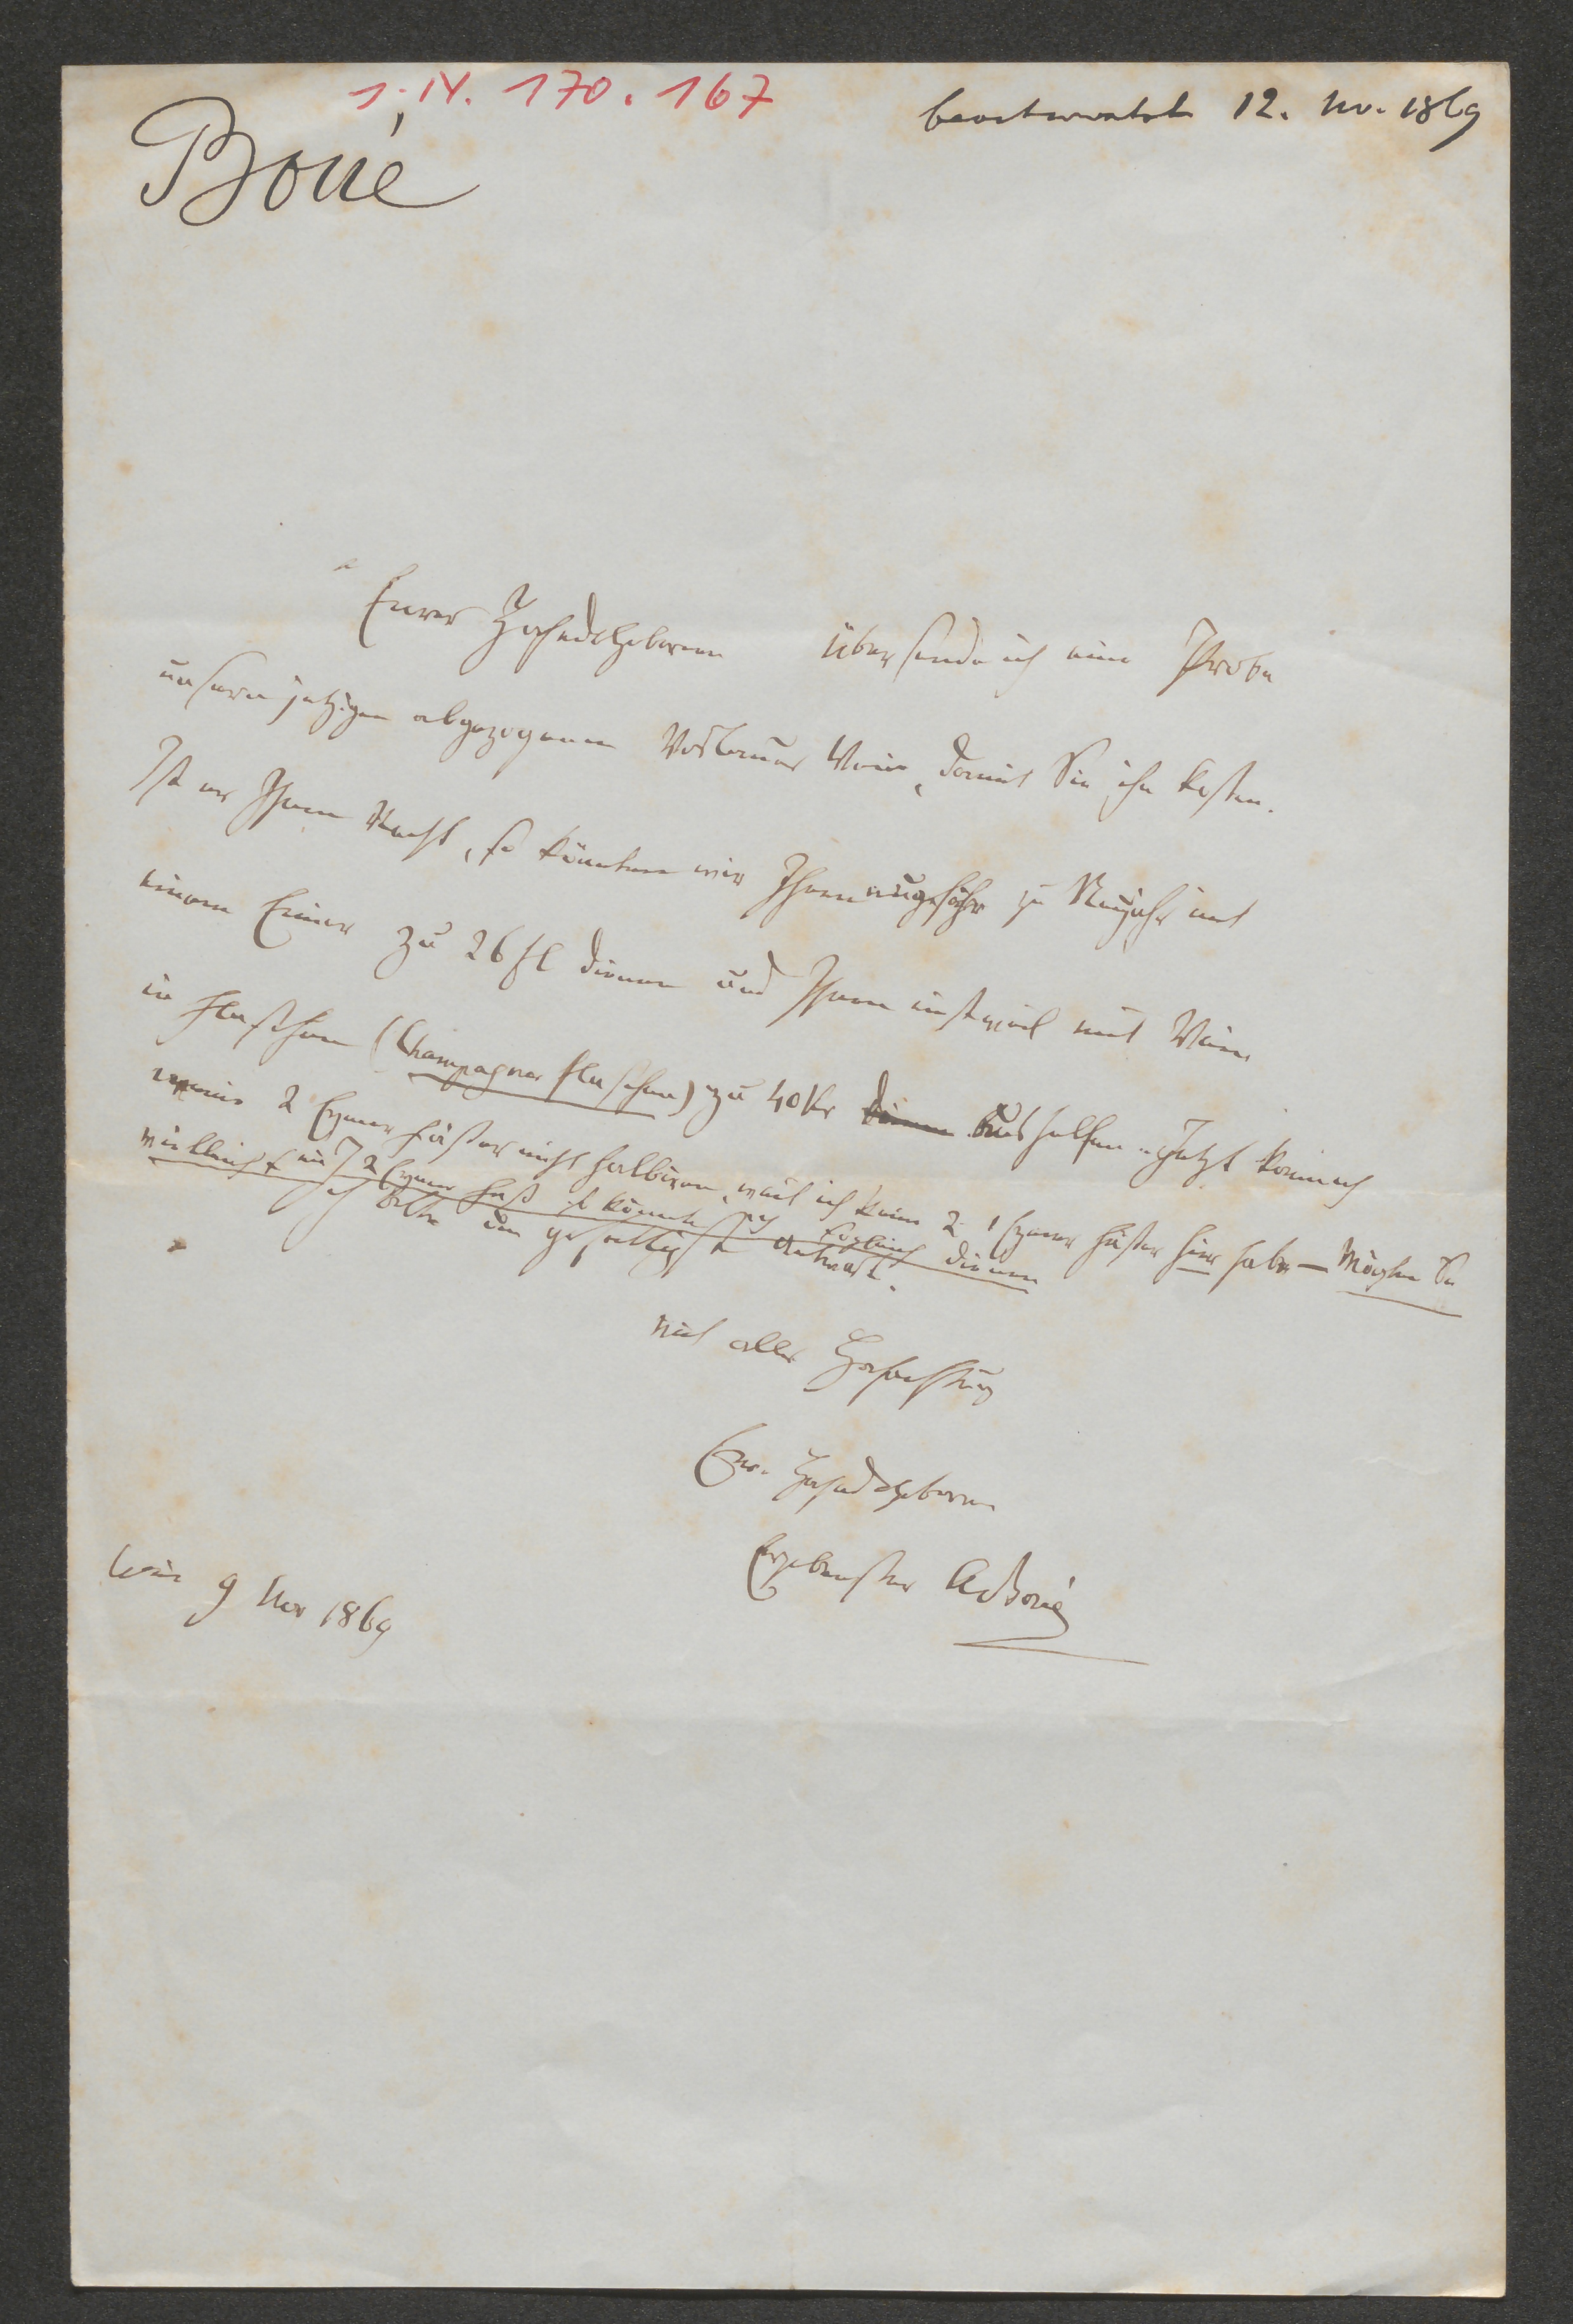 1. IV. 170. 167
beantwortet 12. Nov. 1869
Boué
Euer Hochedelgeboren übersende ich eine Probe
unseren jetzigen abgezogenen Vöslauer Wein, damit Sie ihn kosten.
Ist er Ihnen Recht, so könnten wir Ihnen ungefähr zu Neujahr mit
einem Eimer zu 26 fl dienen und Ihnen mit Wein
in Flaschen (Champagner flaschen) zu 40 Kr dienen aushelfen. Jetzt kann ich
meine 2 Eymer Fäßer nicht halbiren, weil ich keine 2. 1 Eymer Fäßer hier habe — Möchten Sie
vielleicht ein 2 Eymer Faß so könnte ich sogleich dienen
Ich bitte um gefälligste Antwort.
Mit aller Hochachtung
Euer Hochedelgeboren
Ergebenster A. Boué
Wien 9 Nov 1869